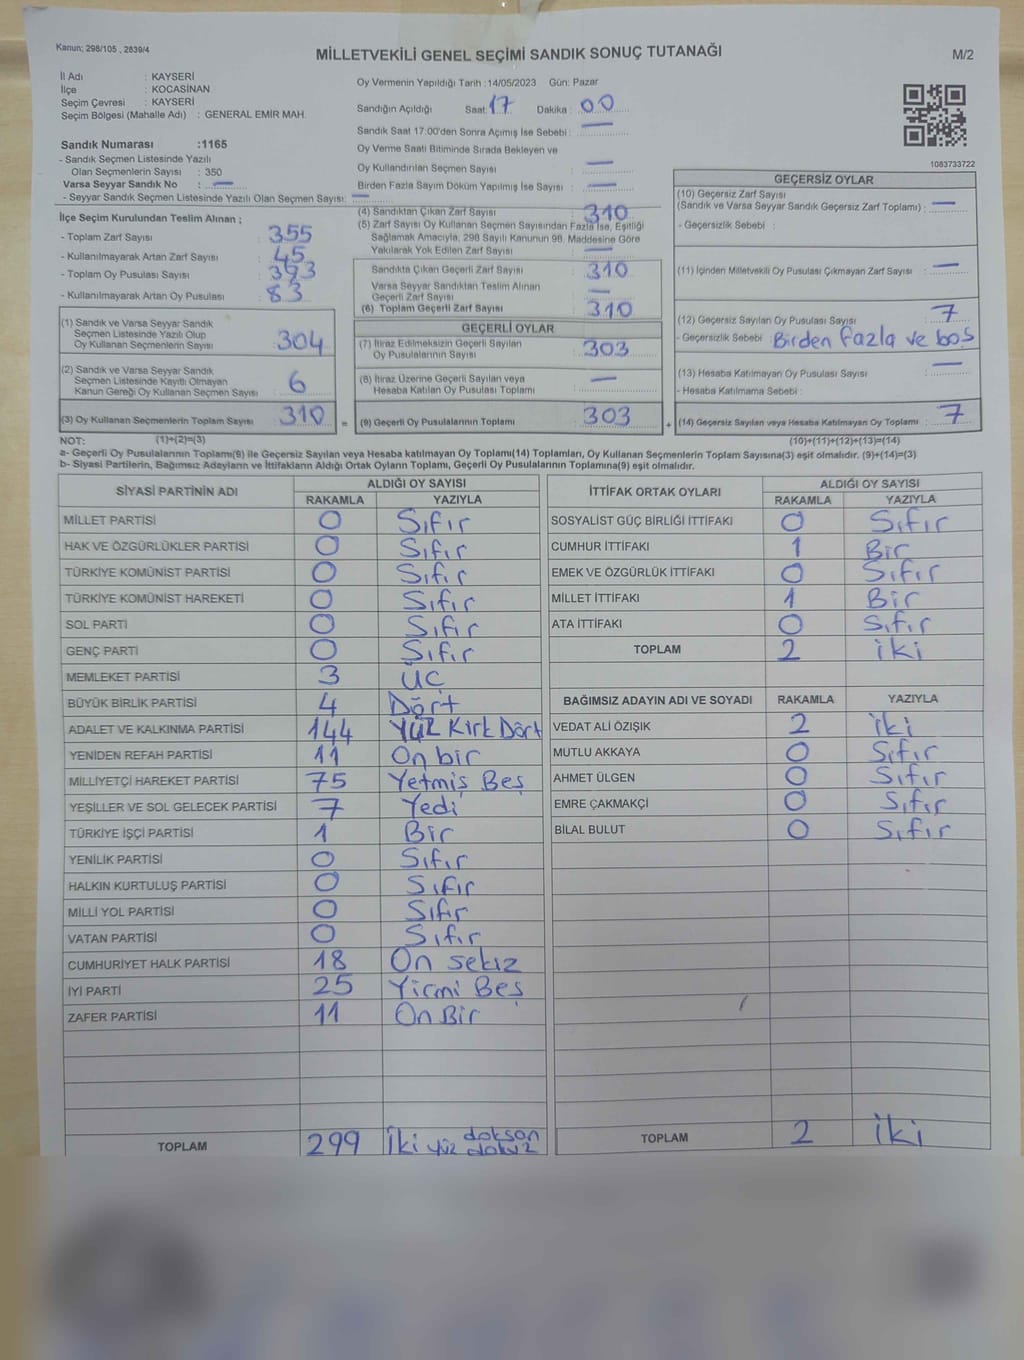 Kanun; 298/105 , 2839/4
MİLLETVEKİLİ GENEL SEÇİMİ SANDIK SONUÇ TUTANAĞI
M/2
İl Adı : KAYSERİ
İlçe : KOCASİNAN
Seçim Çevresi : KAYSERİ
Seçim Bölgesi (Mahalle Adı) : GENERAL EMİR MAH.
Sandık Numarası :1165
- Sandık Seçmen Listesinde Yazılı
Olan Seçmenlerin Sayısı : 350
Varsa Seyyar Sandık No : —
- Seyyar Sandık Seçmen Listesinde Yazılı Olan Seçmen Sayısı: —
Oy Vermenin Yapıldığı Tarih :14/05/2023 Gün: Pazar
Sandığın Açıldığı Saat: 17 Dakika : 00
Sandık Saat 17.00'den Sonra Açımış İse Sebebi : —
Oy Verme Saati Bitiminde Sırada Bekleyen ve
Oy Kullandırılan Seçmen Sayısı : —
Birden Fazla Sayım Döküm Yapılmış İse Sayısı : —
1083733722
İlçe Seçim Kurulundan Teslim Alınan ;
- Toplam Zarf Sayısı : 355
- Kullanılmayarak Artan Zarf Sayısı : 45
- Toplam Oy Pusulası Sayısı : 393
- Kullanılmayarak Artan Oy Pusulası : 83
(1) Sandık ve Varsa Seyyar Sandık
Seçmen Listesinde Yazılı Olup
Oy Kullanan Seçmenlerin Sayısı : 304
(2) Sandık ve Varsa Seyyar Sandık
Seçmen Listesinde Kayıtlı Olmayan
Kanun Gereği Oy Kullanan Seçmen Sayısı : 6
(3) Oy Kullanan Seçmenlerin Toplam Sayısı : 310 =
(4) Sandıktan Çıkan Zarf Sayısı : 310
(5) Zarf Sayısı Oy Kullanan Seçmen Sayısından Fazla İse, Eşitliği
Sağlamak Amacıyla, 298 Sayılı Kanunun 98. Maddesine Göre
Yakılarak Yok Edilen Zarf Sayısı : —
Sandıkta Çıkan Geçerli Zarf Sayısı : 310
Varsa Seyyar Sandıktan Teslim Alınan
Geçerli Zarf Sayısı : —
(6) Toplam Geçerli Zarf Sayısı : 310
GEÇERLİ OYLAR
(7) İtiraz Edilmeksizin Geçerli Sayılan
Oy Pusulalarının Sayısı : 303
(8) İtiraz Üzerine Geçerli Sayılan veya
Hesaba Katılan Oy Pusulası Toplamı : —
(9) Geçerli Oy Pusulalarının Toplamı : 303 +
GEÇERSİZ OYLAR
(10) Geçersiz Zarf Sayısı
(Sandık ve Varsa Seyyar Sandık Geçersiz Zarf Toplamı) : —
- Geçersizlik Sebebi :
(11) İçinden Milletvekili Oy Pusulası Çıkmayan Zarf Sayısı : —
(12) Geçersiz Sayılan Oy Pusulası Sayısı : 7
- Geçersizlik Sebebi : Birden fazla ve boş
(13) Hesaba Katılmayan Oy Pusulası Sayısı : —
- Hesaba Katılmama Sebebi :
(14) Geçersiz Sayılan veya Hesaba Katılmayan Oy Toplamı : 7
NOT: (1)+(2)=(3)
(10)+(11)+(12)+(13)=(14)
a- Geçerli Oy Pusulalarının Toplamı(9) ile Geçersiz Sayılan veya Hesaba katılmayan Oy Toplamı(14) Toplamları, Oy Kullanan Seçmenlerin Toplam Sayısına(3) eşit olmalıdır. (9)+(14)=(3)
b- Siyasi Partilerin, Bağımsız Adayların ve İttifakların Aldığı Ortak Oyların Toplamı, Geçerli Oy Pusulalarının Toplamına(9) eşit olmalıdır.
SİYASİ PARTİNİN ADI ALDIĞI OY SAYISI
RAKAMLA YAZIYLA
MİLLET PARTİSİ 0 Sıfır
HAK VE ÖZGÜRLÜKLER PARTİSİ 0 Sıfır
TÜRKİYE KOMÜNİST PARTİSİ 0 Sıfır
TÜRKİYE KOMÜNİST HAREKETİ 0 Sıfır
SOL PARTİ 0 Sıfır
GENÇ PARTİ 0 Sıfır
MEMLEKET PARTİSİ 3 Üç
BÜYÜK BİRLİK PARTİSİ 4 Dört
ADALET VE KALKINMA PARTİSİ 144 Yüz Kırk Dört
YENİDEN REFAH PARTİSİ 11 On bir
MİLLİYETÇİ HAREKET PARTİSİ 75 Yetmiş Beş
YEŞİLLER VE SOL GELECEK PARTİSİ 7 Yedi
TÜRKİYE İŞÇİ PARTİSİ 1 Bir
YENİLİK PARTİSİ 0 Sıfır
HALKIN KURTULUŞ PARTİSİ 0 Sıfır
MİLLİ YOL PARTİSİ 0 Sıfır
VATAN PARTİSİ 0 Sıfır
CUMHURİYET HALK PARTİSİ 18 On sekiz
İYİ PARTİ 25 Yirmi Beş
ZAFER PARTİSİ 11 On Bir
TOPLAM 299 İki yüz doksan dokuz
İTTİFAK ORTAK OYLARI ALDIĞI OY SAYISI
RAKAMLA YAZIYLA
SOSYALİST GÜÇ BİRLİĞİ İTTİFAKI 0 Sıfır
CUMHUR İTTİFAKI 1 Bir
EMEK VE ÖZGÜRLÜK İTTİFAKI 0 Sıfır
MİLLET İTTİFAKI 1 Bir
ATA İTTİFAKI 0 Sıfır
TOPLAM 2 iki
BAĞIMSIZ ADAYIN ADI VE SOYADI RAKAMLA YAZIYLA
VEDAT ALİ ÖZIŞIK 2 iki
MUTLU AKKAYA 0 Sıfır
AHMET ÜLGEN 0 Sıfır
EMRE ÇAKMAKÇİ 0 Sıfır
BİLAL BULUT 0 Sıfır
TOPLAM 2 iki